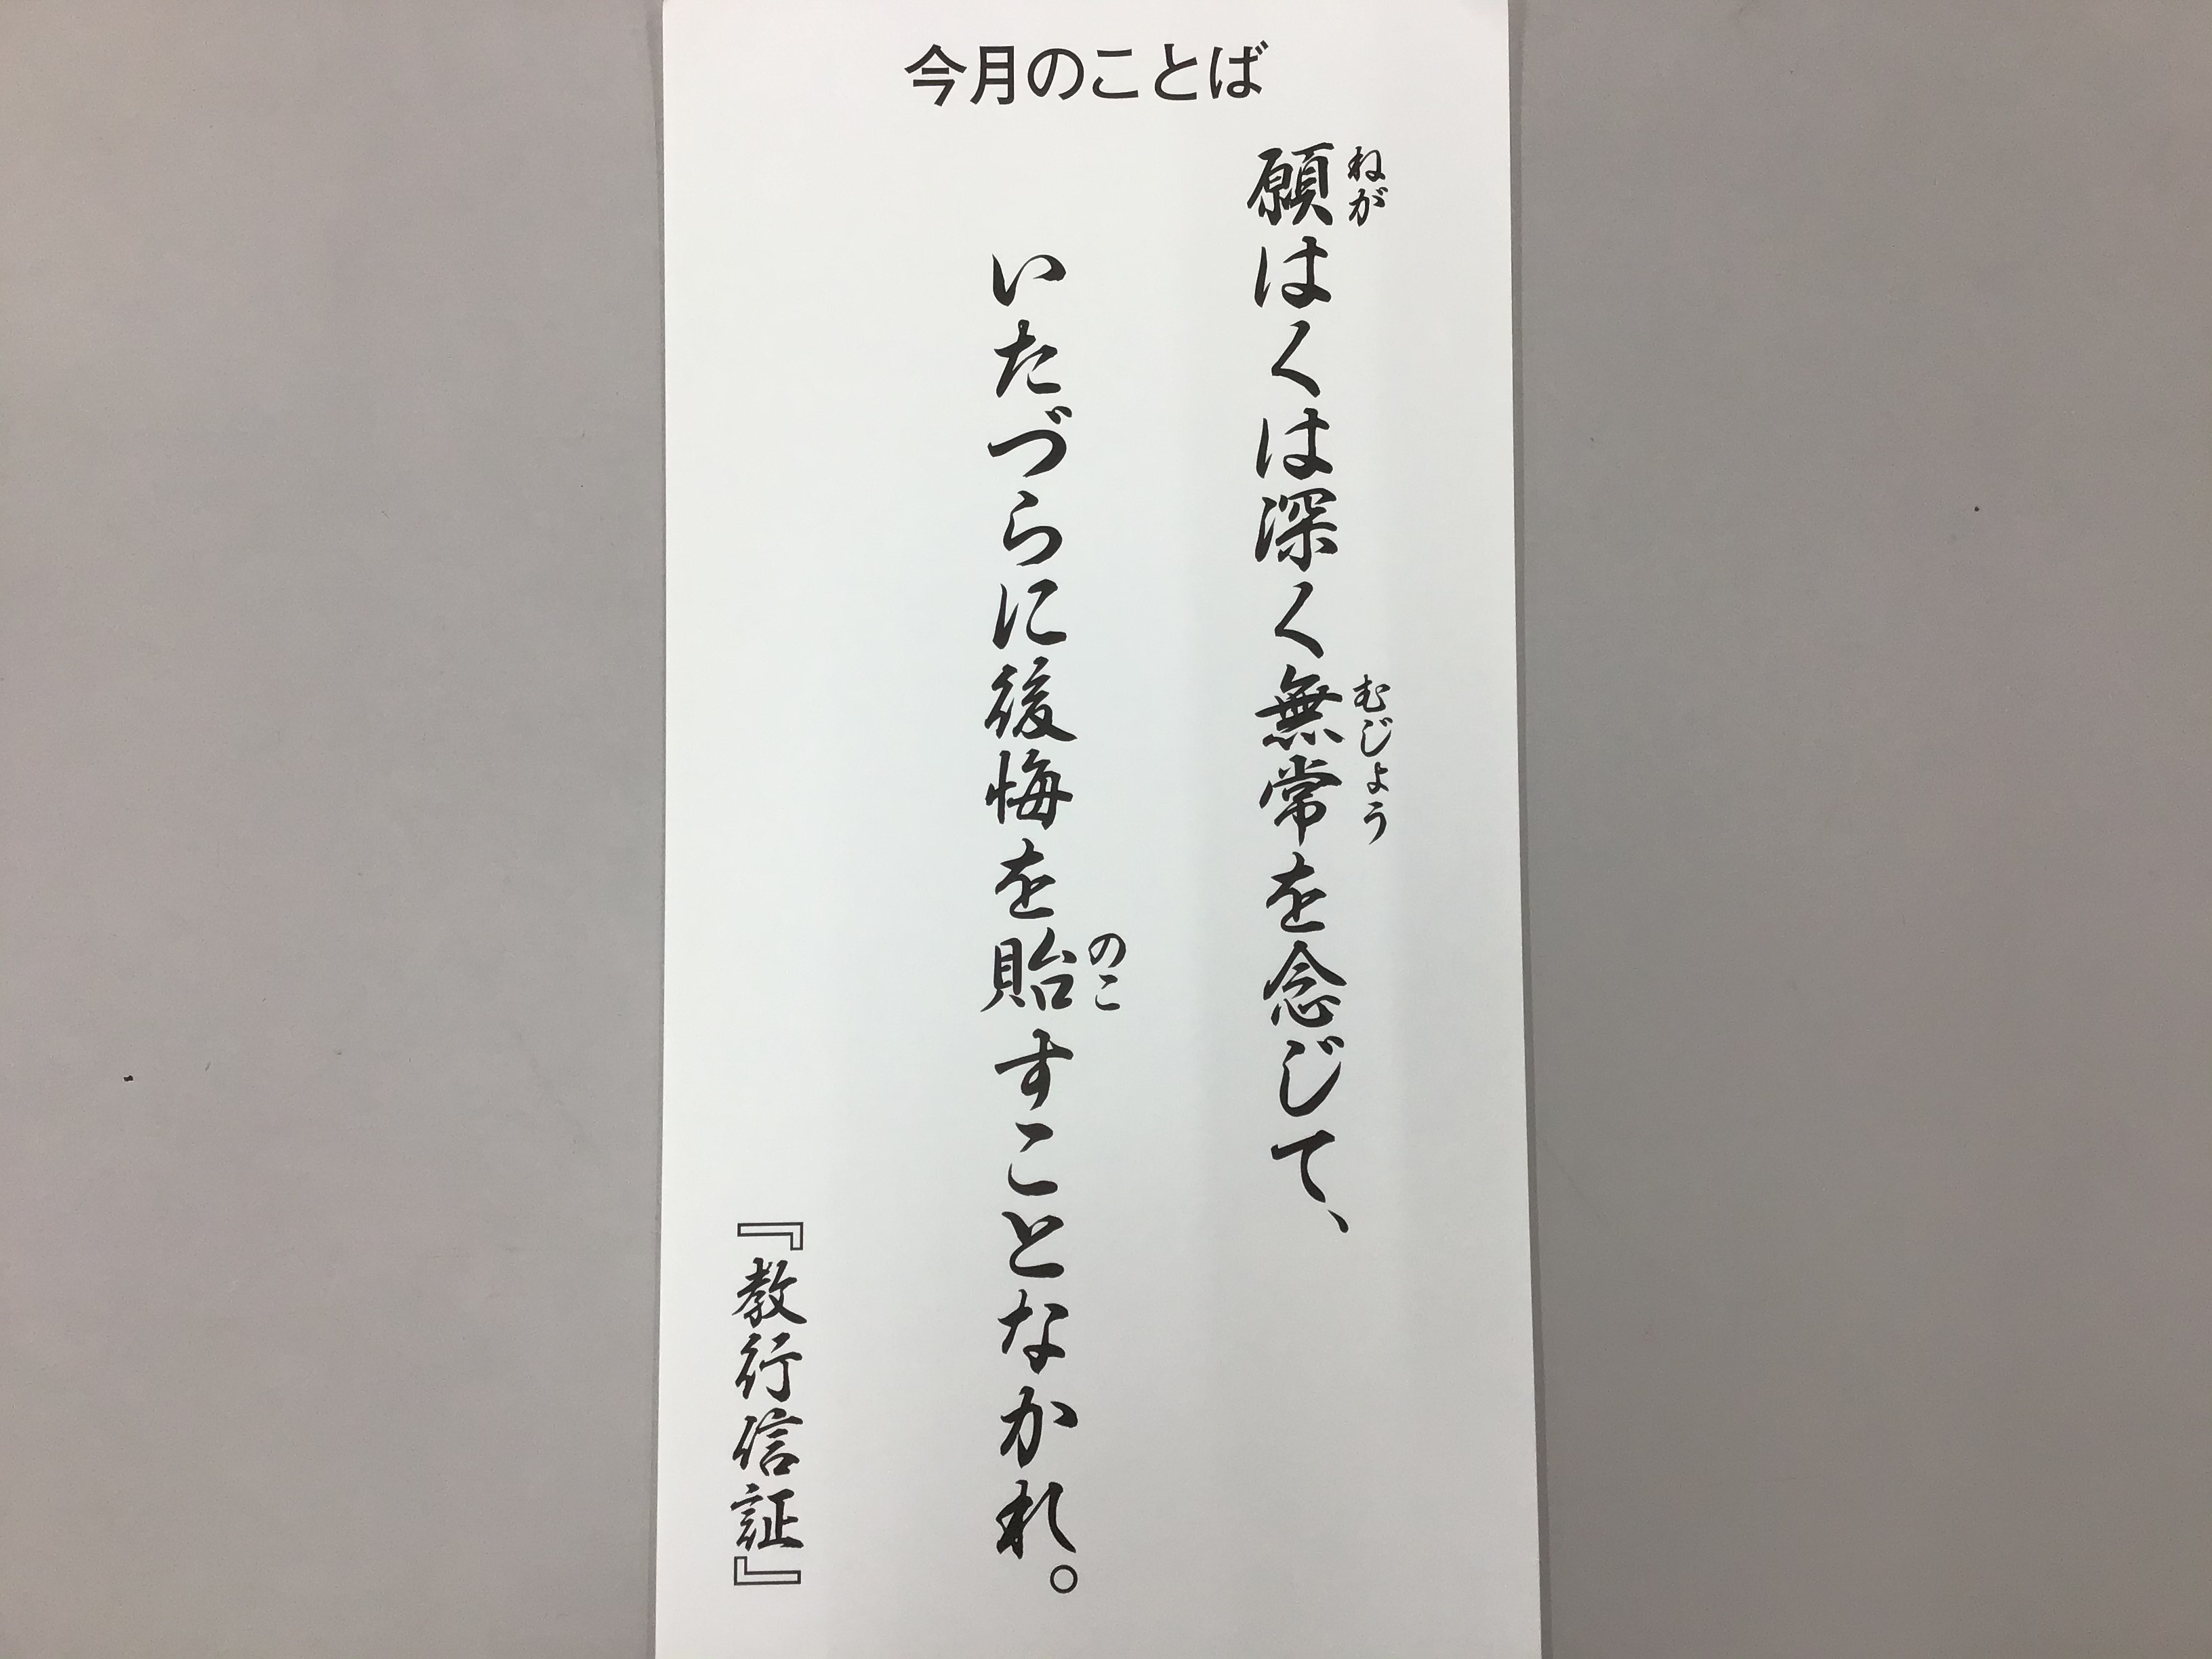 今月のことば
願はくは深く無常を念じて、
ねが
むじょう
いたづらに後悔を貽すことなかれ。
のこ
『教行信証』